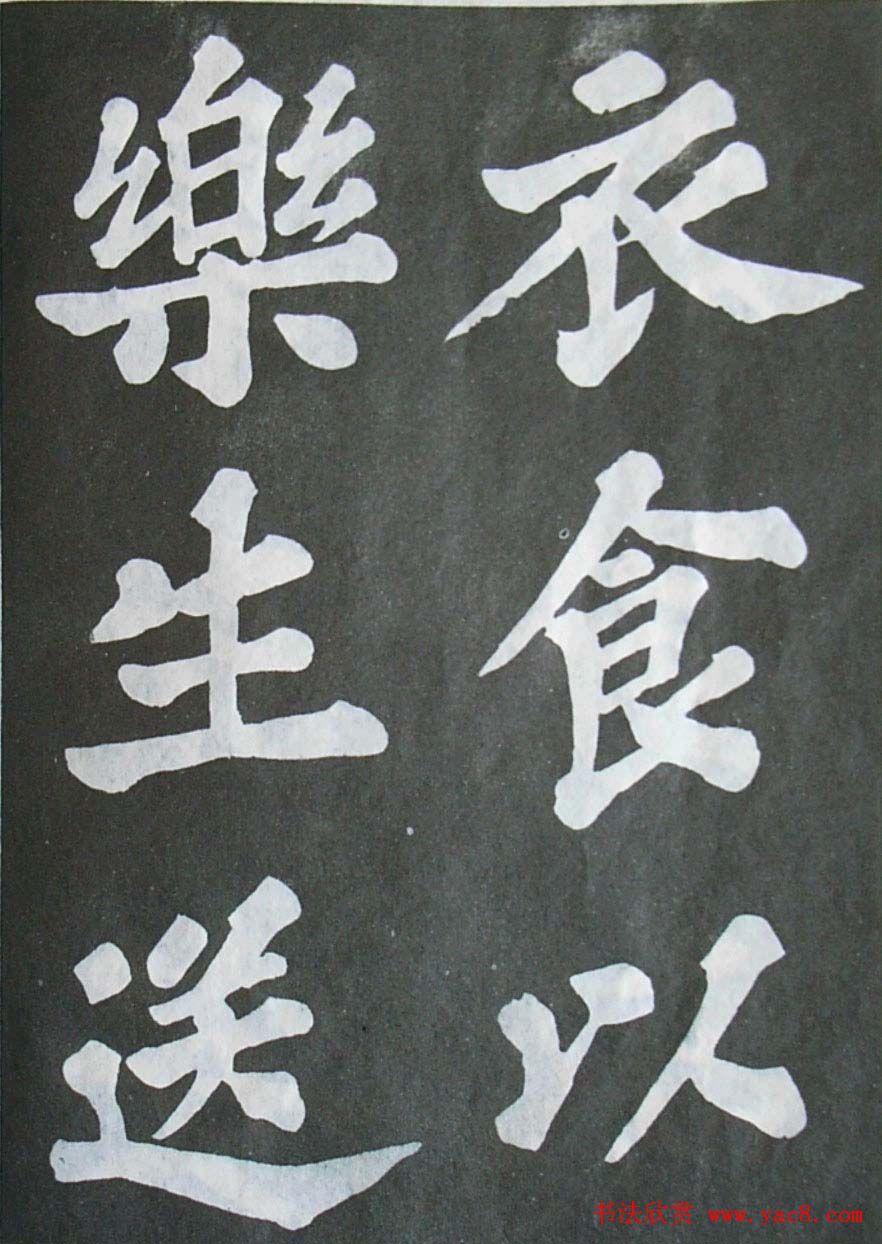 衣食以
樂生送
书法欣赏 www.yac8.com